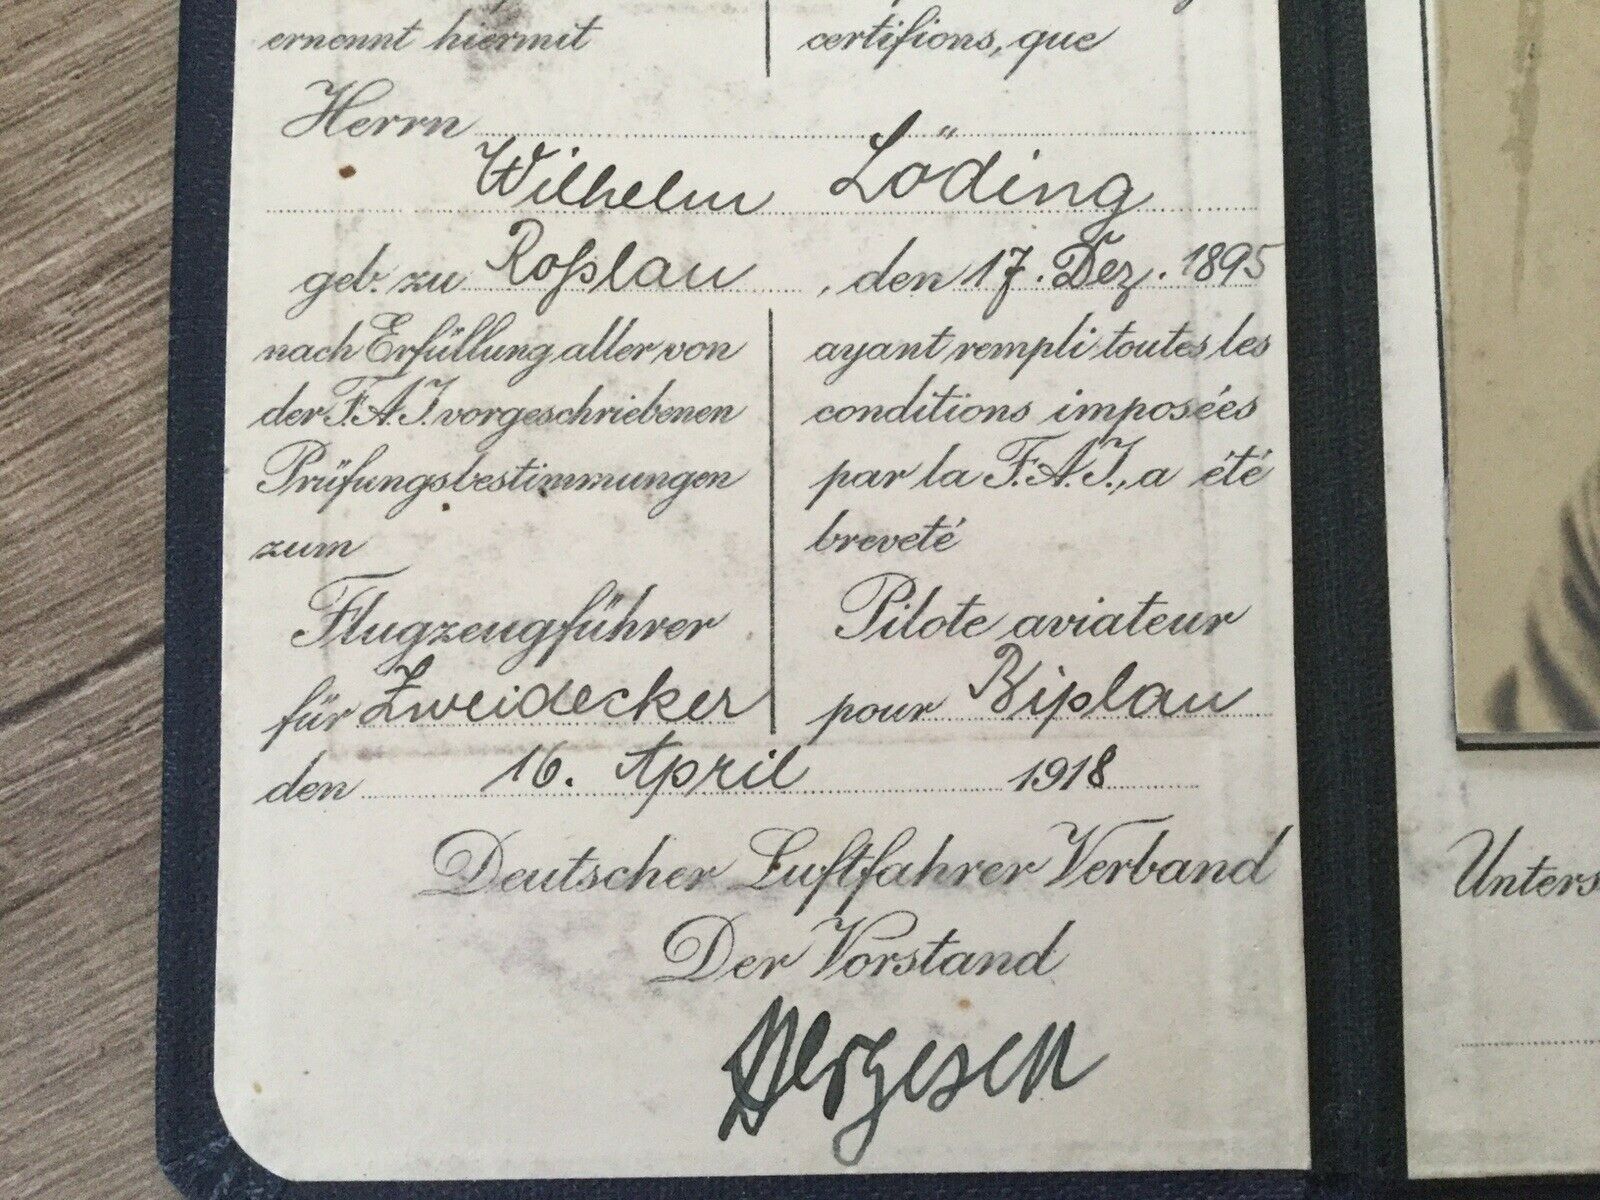 ernennt hiermit
certifions, que
Herrn
Wilhelm Löding
geb. zu Roßlau, den 17. Dez. 1895
nach Erfüllung aller von
der F.A.I. vorgeschriebenen
Prüfungsbestimmungen
zum
Flugzeugführer
für Zweidecker
ayant rempli toutes les
conditions imposées
par la F.A.I., a été
breveté
Pilote aviateur
pour Biplau
den 16. April 1918
Deutscher Luftfahrer Verband
Der Vorstand
Unters